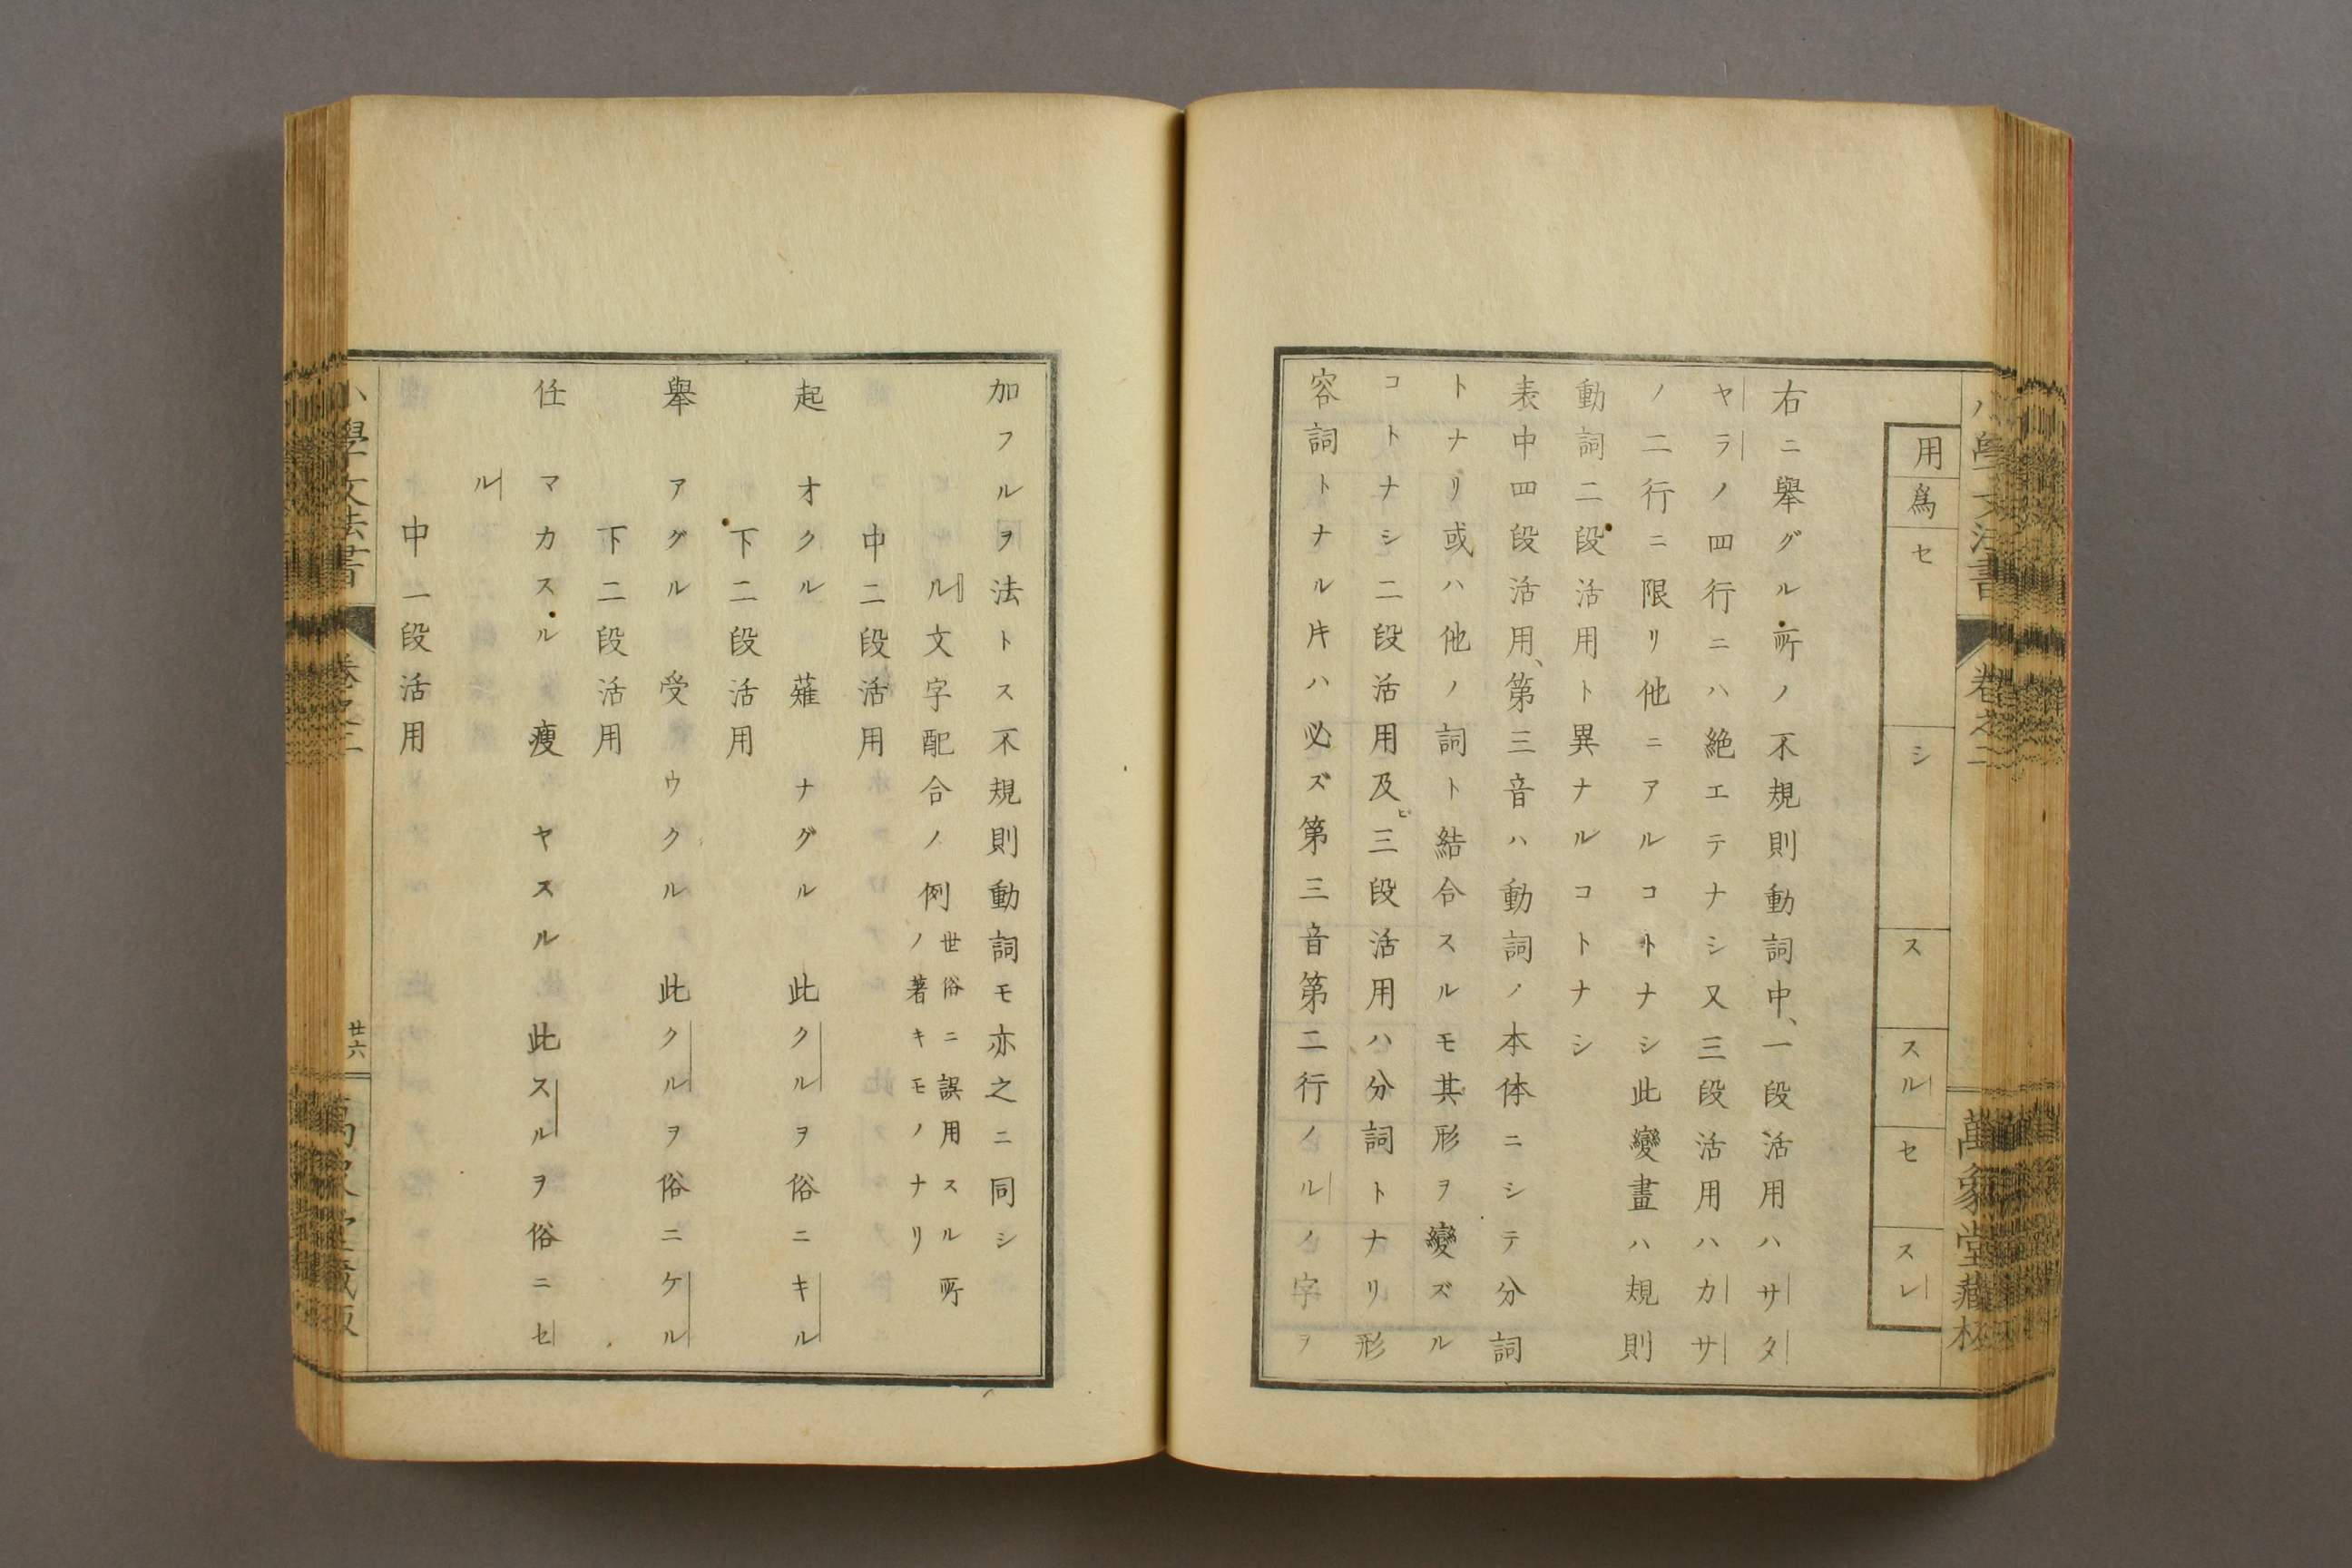 小學文法書 卷之二 萬象堂藏板
用 爲 セ シ ス スル セ スレ
右ニ舉グル所ノ不規則動詞中、一段活用ハサタ
ヤラノ四行ニハ絶エテナシ又三段活用ハカサ
ノ二行ニ限リ他ニアルコトナシ此變畫ハ規則
動詞二段活用ト異ナルコトナシ
表中四段活用、第三音ハ動詞ノ本体ニシテ分詞
トナリ或ハ他ノ詞ト結合スルモ其形ヲ變ズル
コトナシ二段活用及ビ三段活用ハ分詞トナリ形
容詞トナル𪜈ハ必ズ第三音第二行ノルノ字ヲ
加フルヲ法トス不規則動詞モ亦之ニ同シ
ル文字配合ノ例 世俗ニ誤用スル所
ノ著キモノナリ
中二段活用
起 オクル 薙 ナグル 此クルヲ俗ニキル
下二段活用
舉 アグル 受 ウクル 此クルヲ俗ニケル
下二段活用
任 マカスル 瘦 ヤスル 此スルヲ俗ニセ
ル
中一段活用
小學文法書 卷之二 廿六 萬象堂藏板